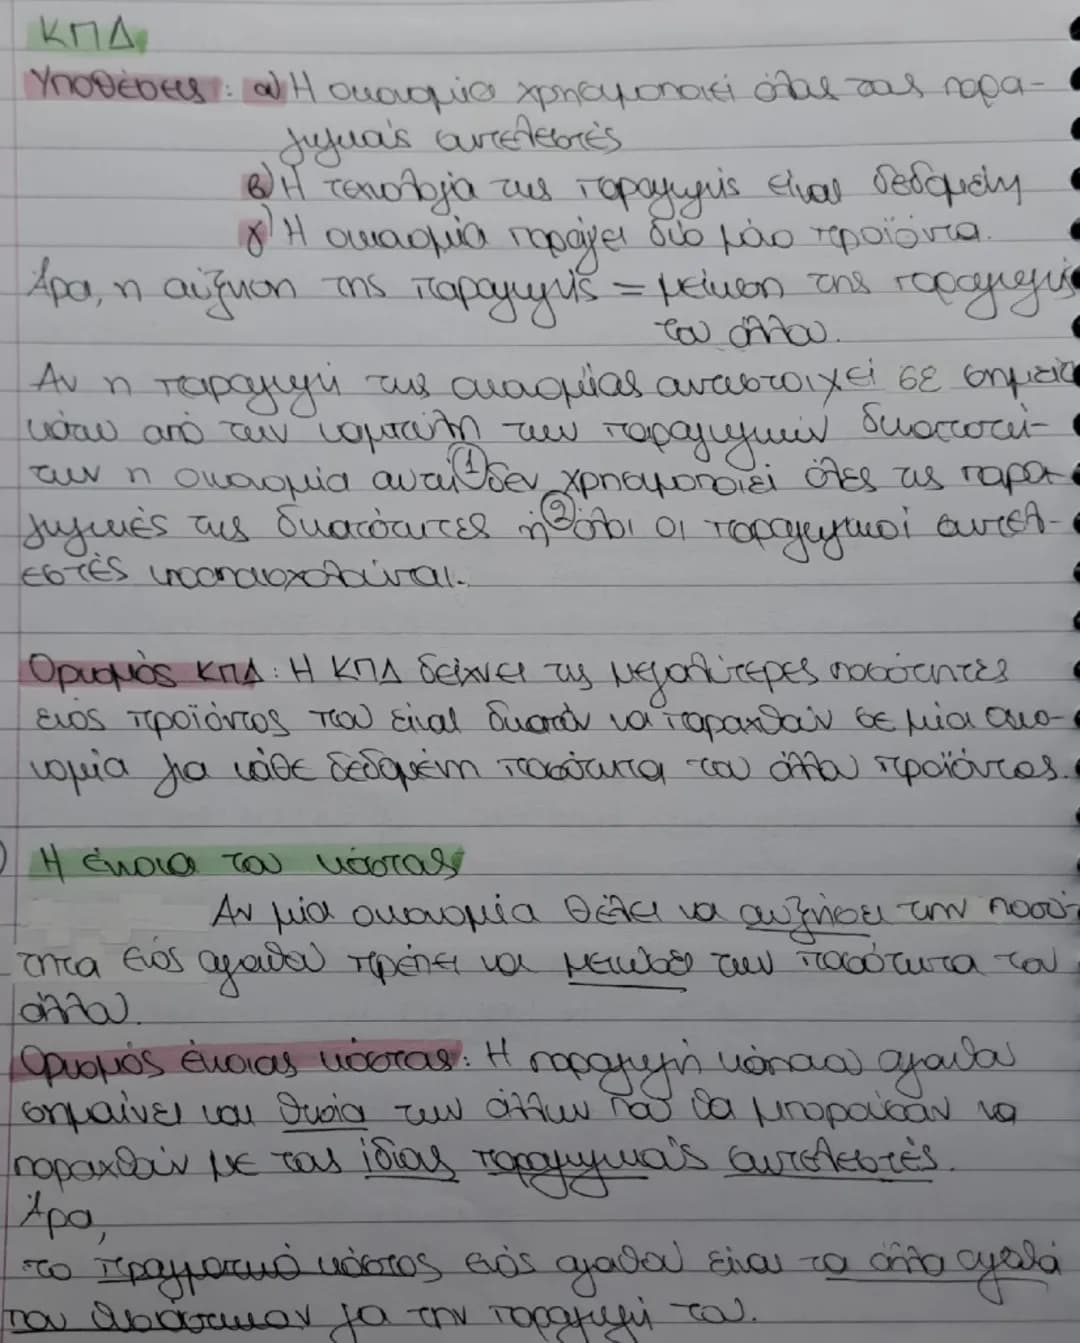 ΚΠΔ
Υποθέσεις: α) Η οικονομία χρησιμοποιεί όλους τους παρα-
γωγικούς συντελεστές
β) Η τεχνολογία της παραγωγής είναι δεδομένη
γ) Η οικονομία παράγει δύο μόνο προϊόντα.
Άρα, η αύξηση της παραγωγής = μείωση της παραγωγής
του άλλου.
Αν η παραγωγή της οικονομίας αντιστοιχεί σε σημείο
κάτω από την καμπύλη των παραγωγικών δυνατοτή-
των η οικονομία αυτή ① δεν χρησιμοποιεί όλες τις παρα-
γωγικές της δυνατότητες ή ② όλοι οι παραγωγικοί συντελ-
εστές υποαπασχολούνται.
Ορισμός ΚΠΔ: Η ΚΠΔ δείχνει τις μεγαλύτερες ποσότητες
ενός προϊόντος που είναι δυνατόν να παραχθούν σε μία οικο-
νομία για κάθε δεδομένη ποσότητα του άλλου προϊόντος.
Η έννοια του κόστους
Αν μία οικονομία θέλει να αυξήσει την ποσό-
τητα ενός αγαθού πρέπει να μειώσει την ποσότητα του
άλλου.
Ορισμός έννοιας κόστους: Η παραγωγή κάποιου αγαθού
σημαίνει και θυσία των άλλων που θα μπορούσαν να
παραχθούν με τους ίδιους παραγωγικούς συντελεστές.
Άρα,
το πραγματικό κόστος ενός αγαθού είναι τα άλλα αγαθά
που θυσιάστηκαν για την παραγωγή του.